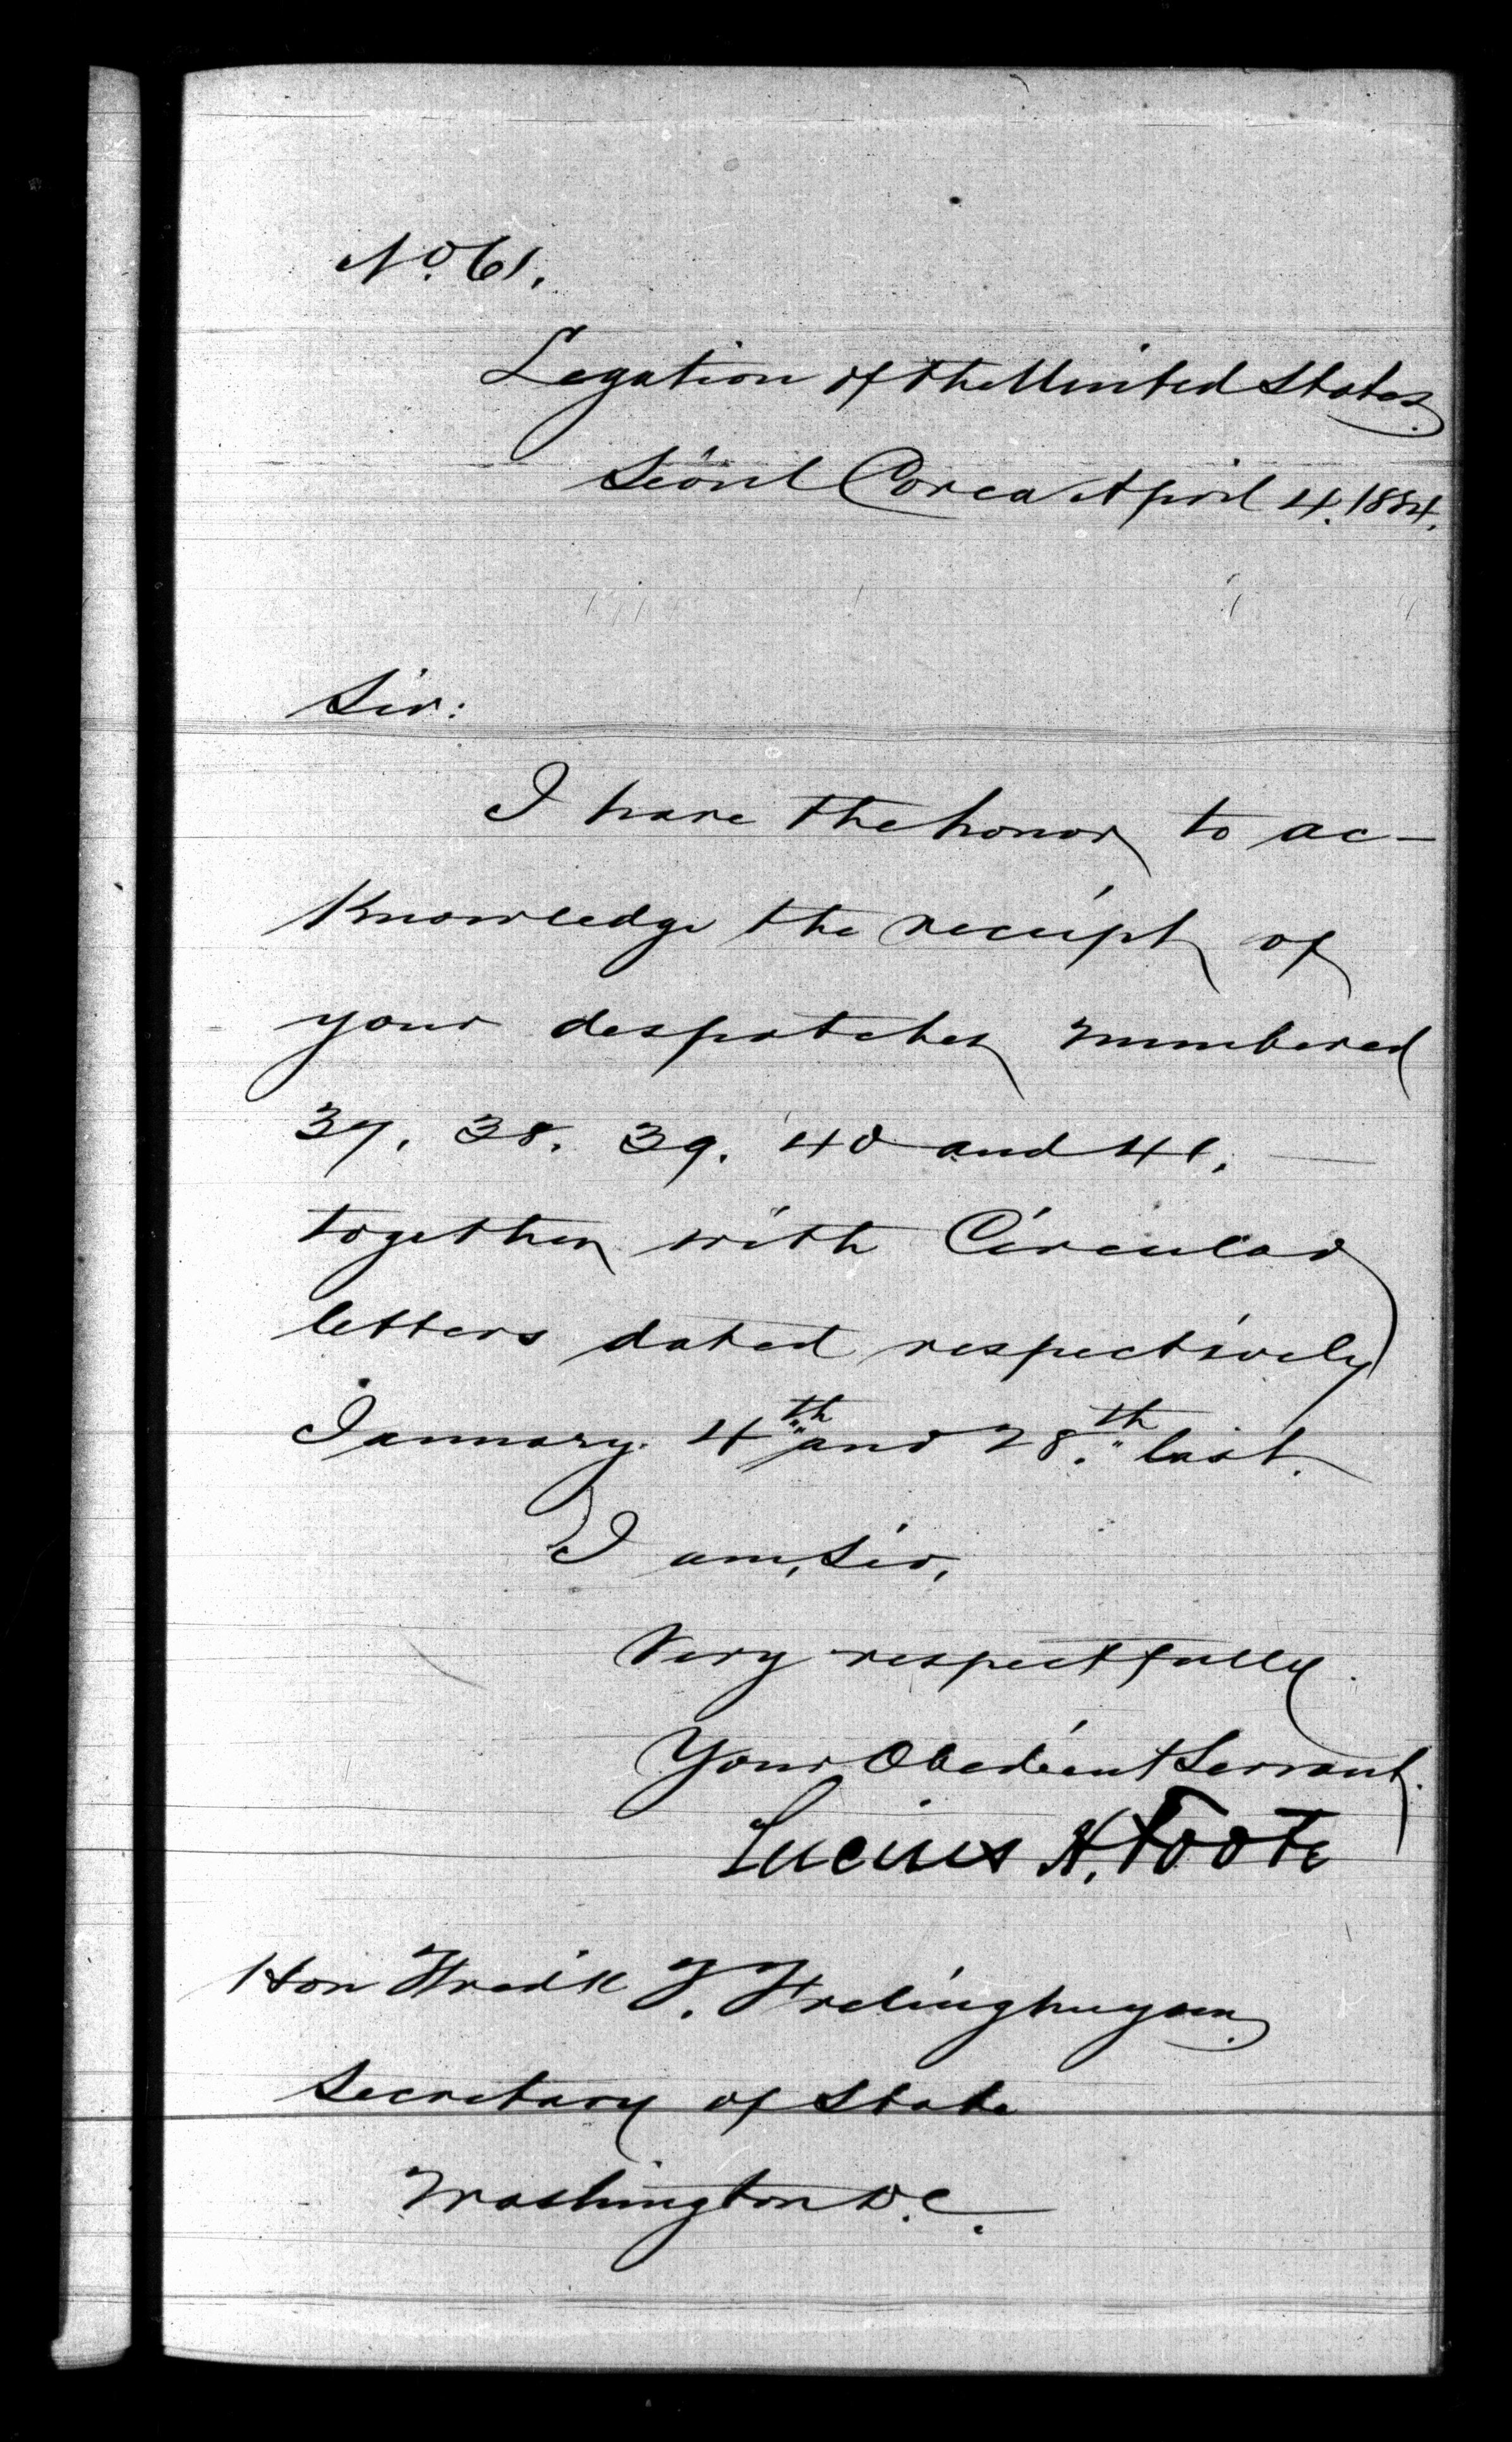 No. 61.
Legation of the United States
Sëoul Corea April 4. 1884.
Sir:
I have the honor to ac-
knowledge the receipt of
your despatches numbered
37. 38. 39. 40 and 41.
together with Circular
letters dated respectively
January 4th and 28th last.
I am, Sir,
Very respectfully.
Your Obedient Servant.
Lucius H. Foote
Hon Fredk T. Frelinghuysen.
Secretary of State
Washington D.C.